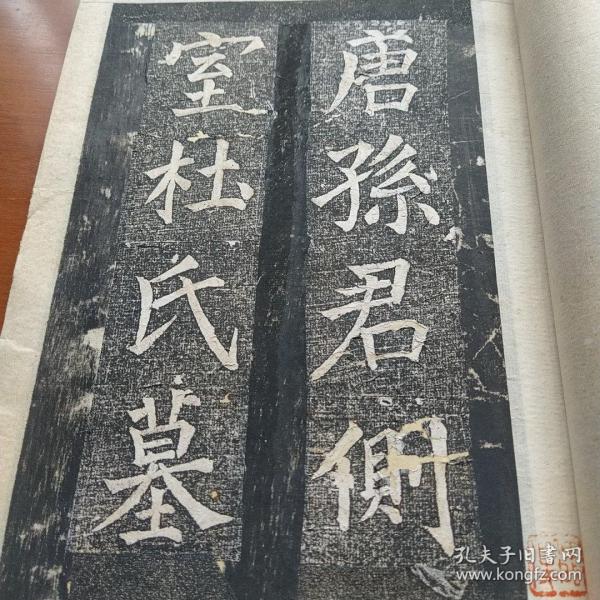 唐孫君側
室杜氏墓
孔夫子旧書网
www.kongfz.com